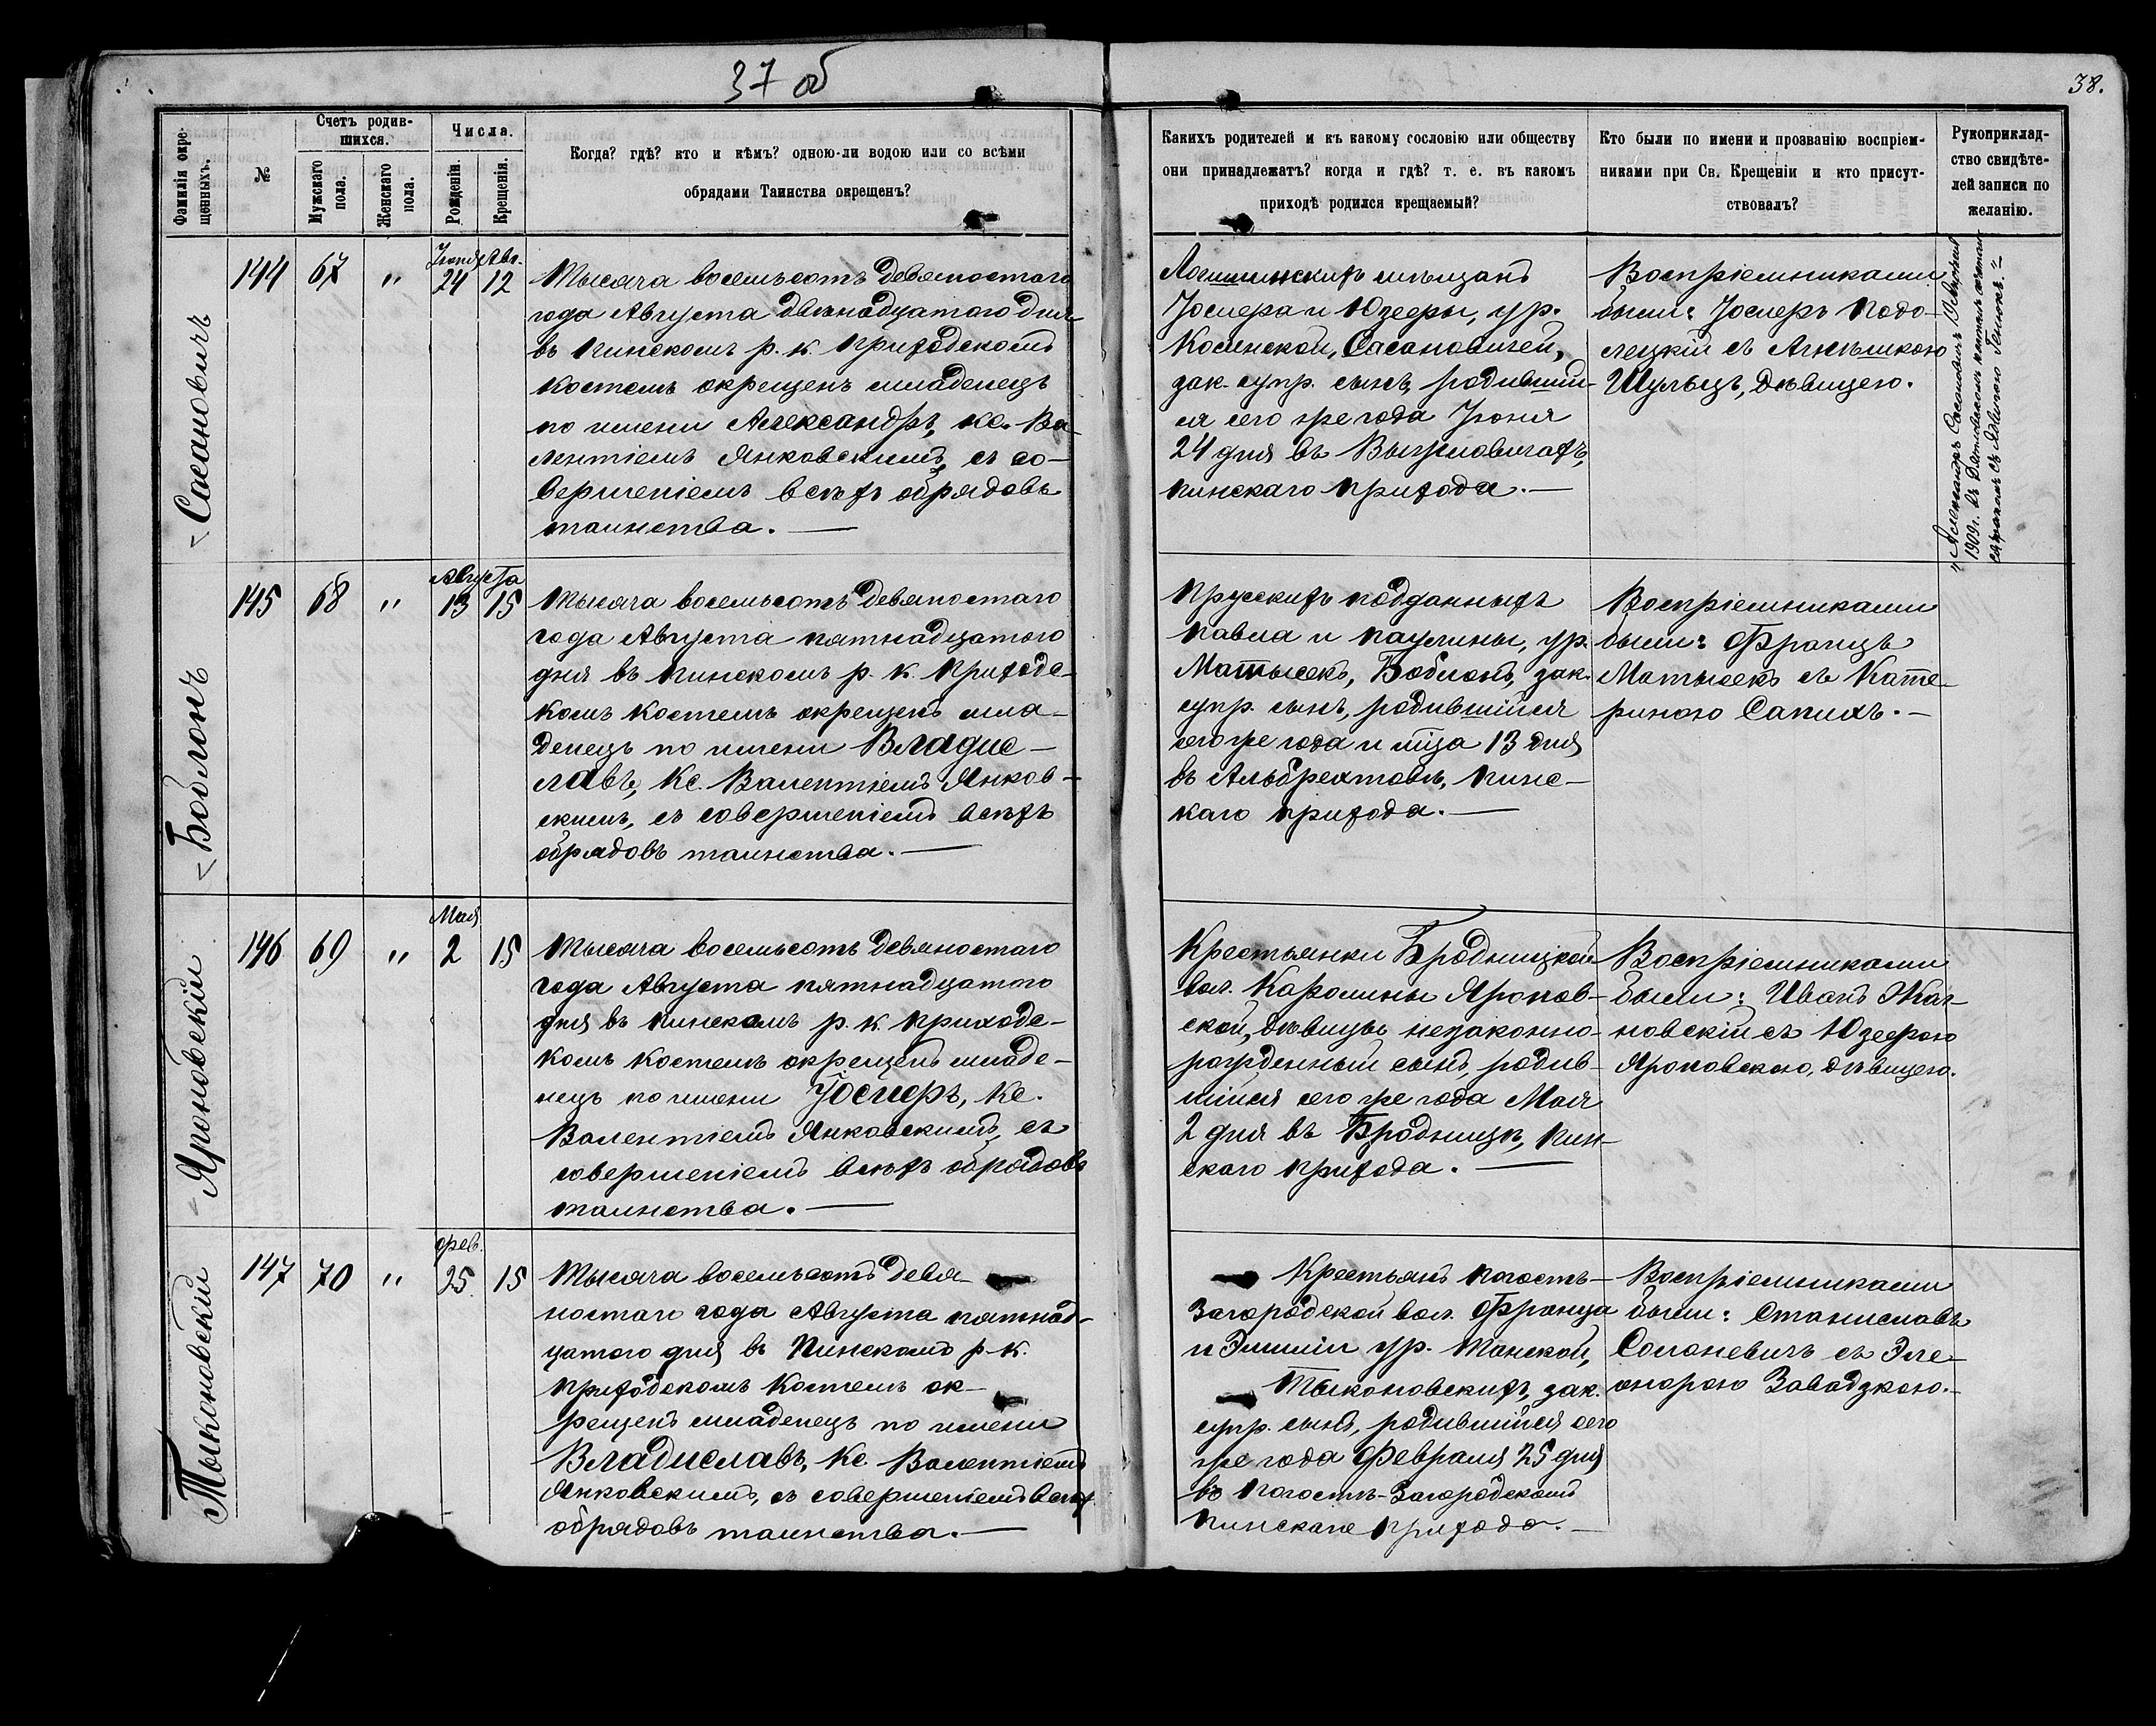 37 об
38.
Фамилія окре-
щенныхъ.
№
Счетъ родив-
шихся.
Мужскаго
пола.
Женскаго
пола.
Числа.
Рожденія.
Крещенія.
Когда? гдѣ? кто и кѣмъ? одною-ли водою или со всѣми
обрядами Таинства окрещенъ?
Какихъ родителей и къ какому сословію или обществу
они принадлежатъ? когда и гдѣ? т. е. въ какомъ
приходѣ родился крещаемый?
Кто были по имени и прозванію воспріем-
никами при Св. Крещеніи и кто присут-
ствовалъ?
Рукоприклад-
ство свидѣте-
лей записи по
желанію.
Сасановичъ
144 67 " Іюня 24 Авг. 12
Тысяча восемьсотъ девяностаго
года Августа двѣнадцатого дня
въ Пинскомъ р. к. приходскомъ
костелѣ окрещенъ младенецъ
по имени Александръ, кс. Ва-
лентіемъ Янковскимъ, съ со-
вершеніемъ всѣхъ обрядовъ
таинства. —
Логишинскихъ мѣщанъ
Іосифа и Юзефы, ур.
Косинской, Сасановичей,
зак. супр. сынъ, родивший-
ся сего же года Іюня
24 дня въ Выжловичахъ,
пинскаго прихода. —
Воспріемниками
были: Іосифъ Подо-
лецкій съ Агнѣшкою
Шульцъ, дѣвицею.
Александръ Сасановичъ
1909 г. въ
съ Ядвигою
Боблонъ
145 68 " Августа 13 15
Тысяча восемьсотъ девяностаго
года Августа пятнадцатого
дня въ Пинскомъ р. к. приходс-
комъ костелѣ окрещенъ мла-
денецъ по имени Владис-
лавъ, кс. Валентіемъ Янков-
скимъ, съ совершеніемъ всѣхъ
обрядовъ таинства. —
Прусскихъ подданныхъ
Павла и Паулины, ур.
Матысекъ, Боблонъ, зак.
супр. сынъ, родившійся
сего же года и м̃ца 13 дня
въ Альбрехтовѣ, пинс-
каго прихода. —
Воспріемниками
были: Францъ
Матысекъ съ Кате-
риною Сапихъ. —
Яроновскій
146 69 " Мая 2 15
Тысяча восемьсотъ девяностаго
года Августа пятнадцатого
дня въ Пинскомъ р. к. приходс-
комъ костелѣ окрещенъ младе-
нецъ по имени Іосифъ, кс.
Валентіемъ Янковскимъ, съ
совершеніемъ всѣхъ обрядовъ
таинства. —
Крестьянки Бродницкой
вол. Каролины Яронов-
ской, дѣвицы незаконно-
рожденный сынъ, родив-
шійся сего же года Мая
2 дня въ Бродницѣ, пин-
скаго прихода. —
Воспріемниками
были: Иванъ
новскій съ Юзефою
Яроновскою, дѣвицею.
Тыконовскій
147 70 " фев. 25 15
Тысяча восемьсотъ девя-
ностаго года Августа пятнад-
цатого дня въ Пинскомъ р. к.
приходскомъ костелѣ ок-
рещенъ младенецъ по имени
Владиславъ, кс. Валентіемъ
Янковскимъ, съ совершеніемъ всѣхъ
обрядовъ таинства. —
Крестьянъ Погостъ-
Загородской вол. Франца
и Эмиліи ур. Манской,
Тыконовскихъ, зак.
супр. сынъ, родившійся сего
же года Февраля 25 дня
въ Погостѣ-Загородскомъ
пинскаго прихода. —
Воспріемниками
были: Станиславъ
Солоневичъ съ Эле-
онорою Завадзкою. —